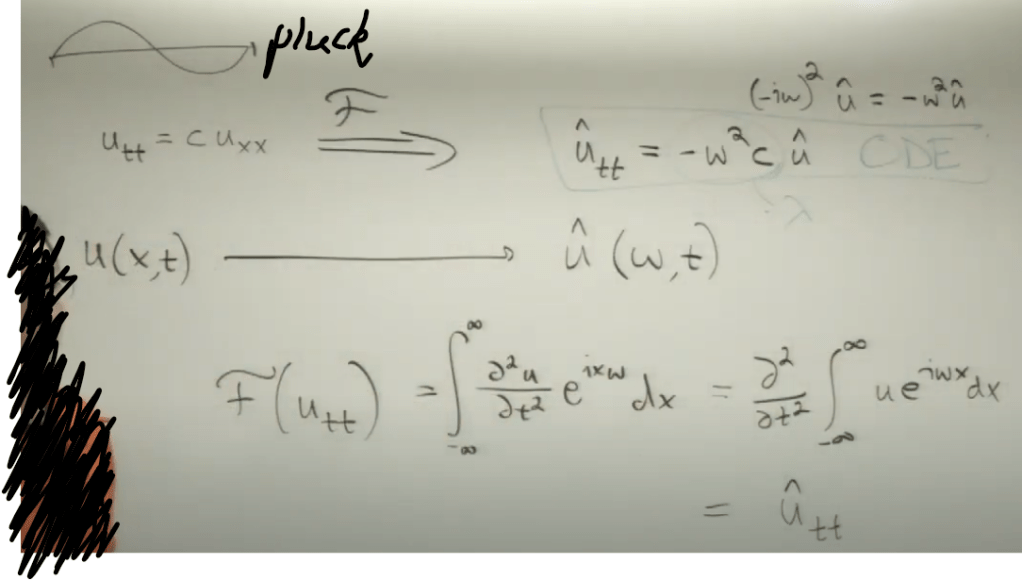 pluck
(-iω)² û = -ω²û
u_tt = c u_xx  𝓕 ⟹  û_tt = -ω²c û  CDE
-λ
u(x,t) ⟶ û(ω,t)
𝓕(u_tt) = ∫_{-∞}^{∞} ∂²u/∂t² e^{ixω} dx = ∂²/∂t² ∫_{-∞}^{∞} u e^{iωx} dx
= û_tt